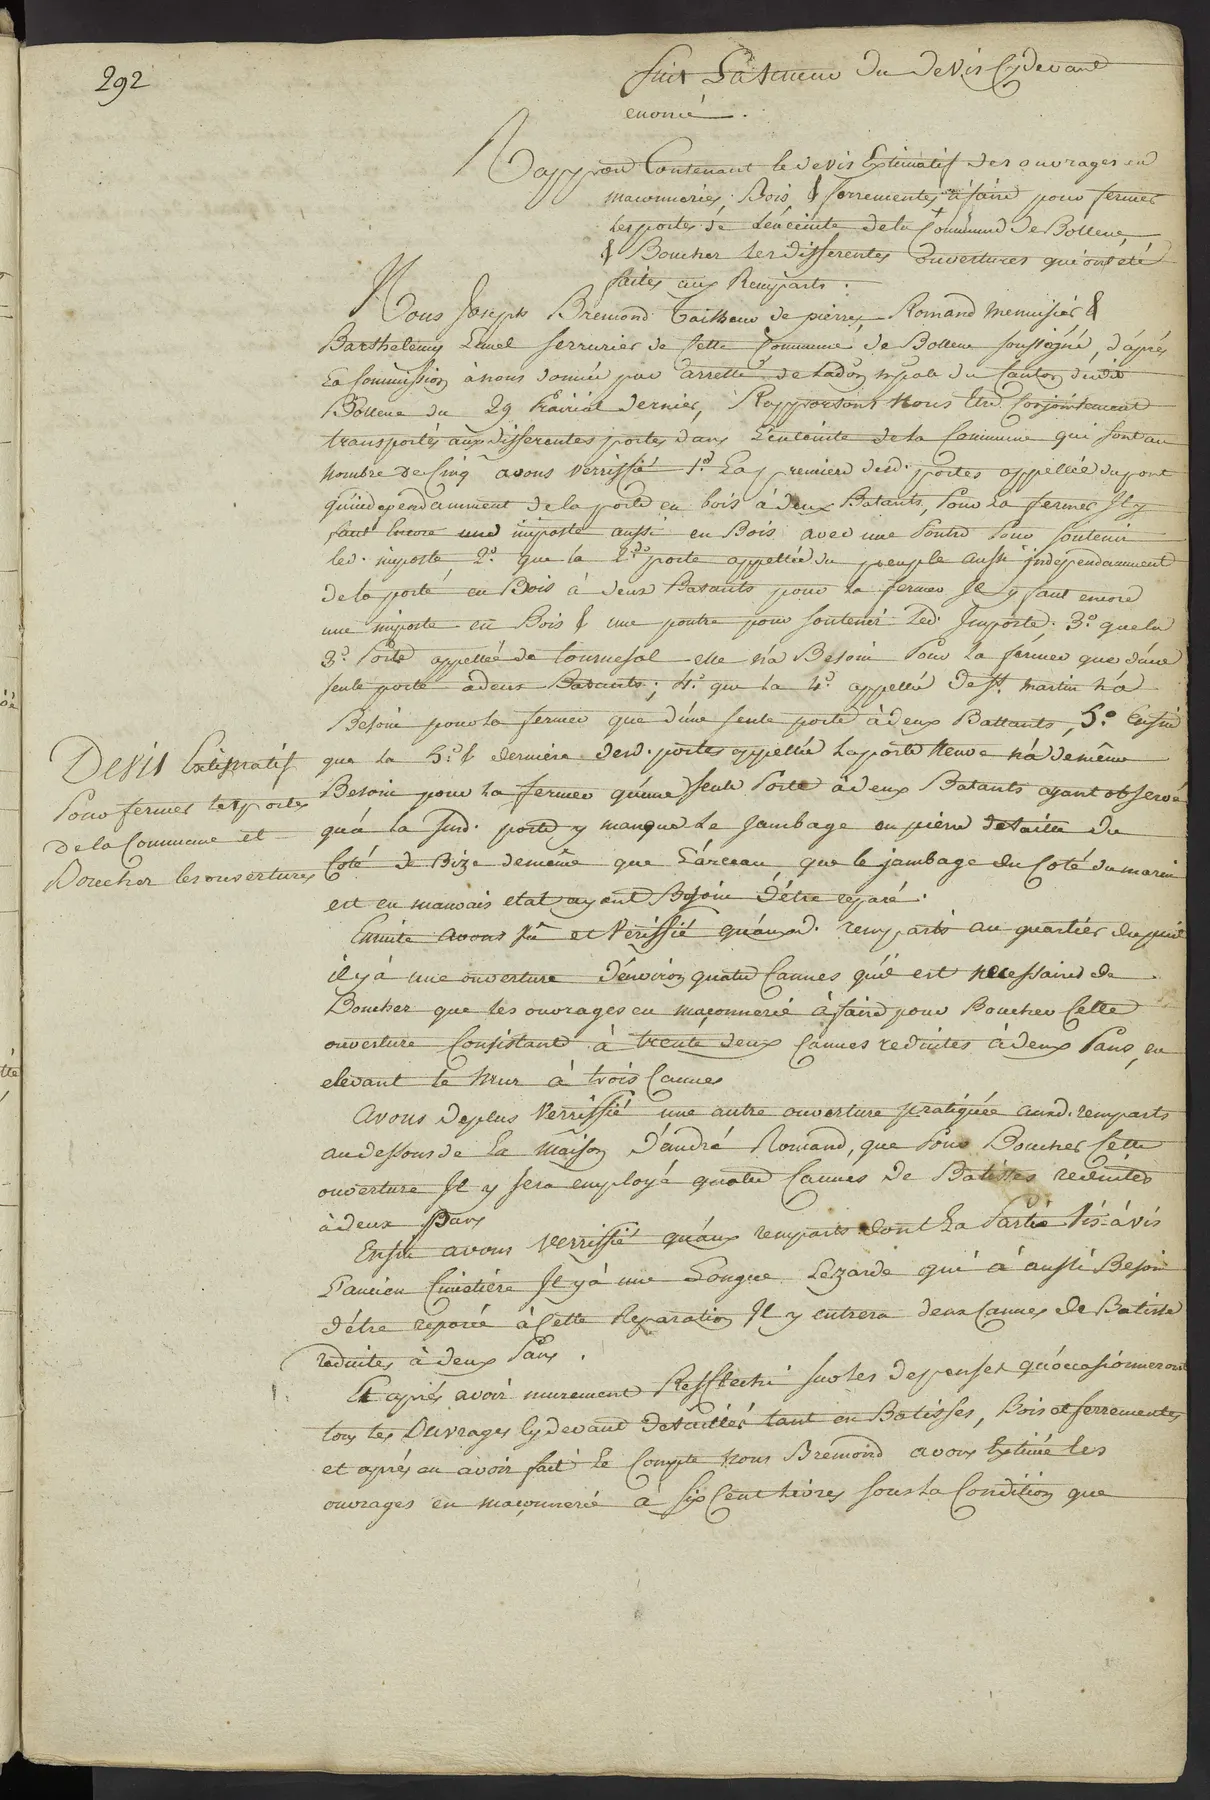 292
Suit La teneur du devis Cydevant
enoncé.
Rapport Contenant le devis Estimatif des ouvrages en
maconneries, Bois, & ferrementes à faire pour fermer
les portes de Lenceinte de la Commune de Bollene,
& Boucher les differentes ouvertures qui ont été
faites aux Remparts.
Nous Joseph Bremond Tailleur de pierre, Romand Menuisier &
Barthelemy serrurier de Cette Commune de Bollene soussigné, d'après
La Commission à nous donnée par arretté de Ladõn du Canton dudit
Bollene du 29 Prairial dernier, Rapportons Nous Etre Conjointement
transportés aux differentes portes dans L'enceinte de la Commune qui sont au
nombre de Cinq avons verriffié 1º. La premiere desd. portes appellée du pont
qu'independamment de la porte en bois à deux Batants, Pour La fermer Il y
faut Encore une imposte aussi en Bois avec une Poutre Pour soutenir
led. imposte 2º. que la 2de. porte appellée du peuple aussi independamment
de la porte en Bois à deux Batants pour la fermer Il y faut encore
une imposte en Bois & une poutre pour soutenir Led. Imposte. 3º. que la
3e. Porte appellée de Tournesol elle n'a Besoin Pour La fermer que d'une
seule porte à deux Batants; 4º. que la 4e. appellée de St. Martin n'a
Besoin pour la fermer que d'une seule porte à deux Battants, 5º. Enfin
que la 5e. & derniere desd. portes appellée La porte Neuve n'a de même
Besoin pour La fermer qu'une seule Porte à deux Batants ayant observé
qu'a la susd. porte y manque Le Jambage en pierre de taille du
Coté de Bize de même que L'arceau, que le jambage du Coté du marin
est en mauvais etat ayant Besoin d'étre reparé.
Devis Estimatif
Pour fermer les portes
de la Commune et
Boucher les ouvertures
Ensuite avons Vû et Verriffié qu'auxd. remparts au quartier du puit
il y à une ouverture d'environ quatre Cannes qu'il est necessaire de
Boucher que les ouvrages en maçonnerie à faire pour Boucher Cette
ouverture Consistant à trente deux Cannes reduites à deux Pans, en
elevant le Mur à trois Cannes
Avons de plus Verriffié une autre ouverture pratiquée auxd. remparts
au dessous de La maison d'andré Romand, que Pour Boucher Cette
ouverture Il y sera employé quatre Cannes de Batisses reduites
à deux Pans
Enfin avons verriffié qu'aux remparts dont La Partie Vis-à-vis
L'ancien Cimetière Il y à une Longue Lezarde qui à aussi Besoin
d'étre reparée à Cette Reparation Il y entrera deux Cannes de Batisse
reduites à deux Pans.
Et après avoir murement Reffléchi sur les depenses qu'occasionneront
tous les Ouvrages Cy devant detaillés tant en Batisses, Bois et ferrementes
et après en avoir fait Le Compte Nous Bremond avons Estimé les
ouvrages en maçonnerie à six Cent Livres sous La Condition que